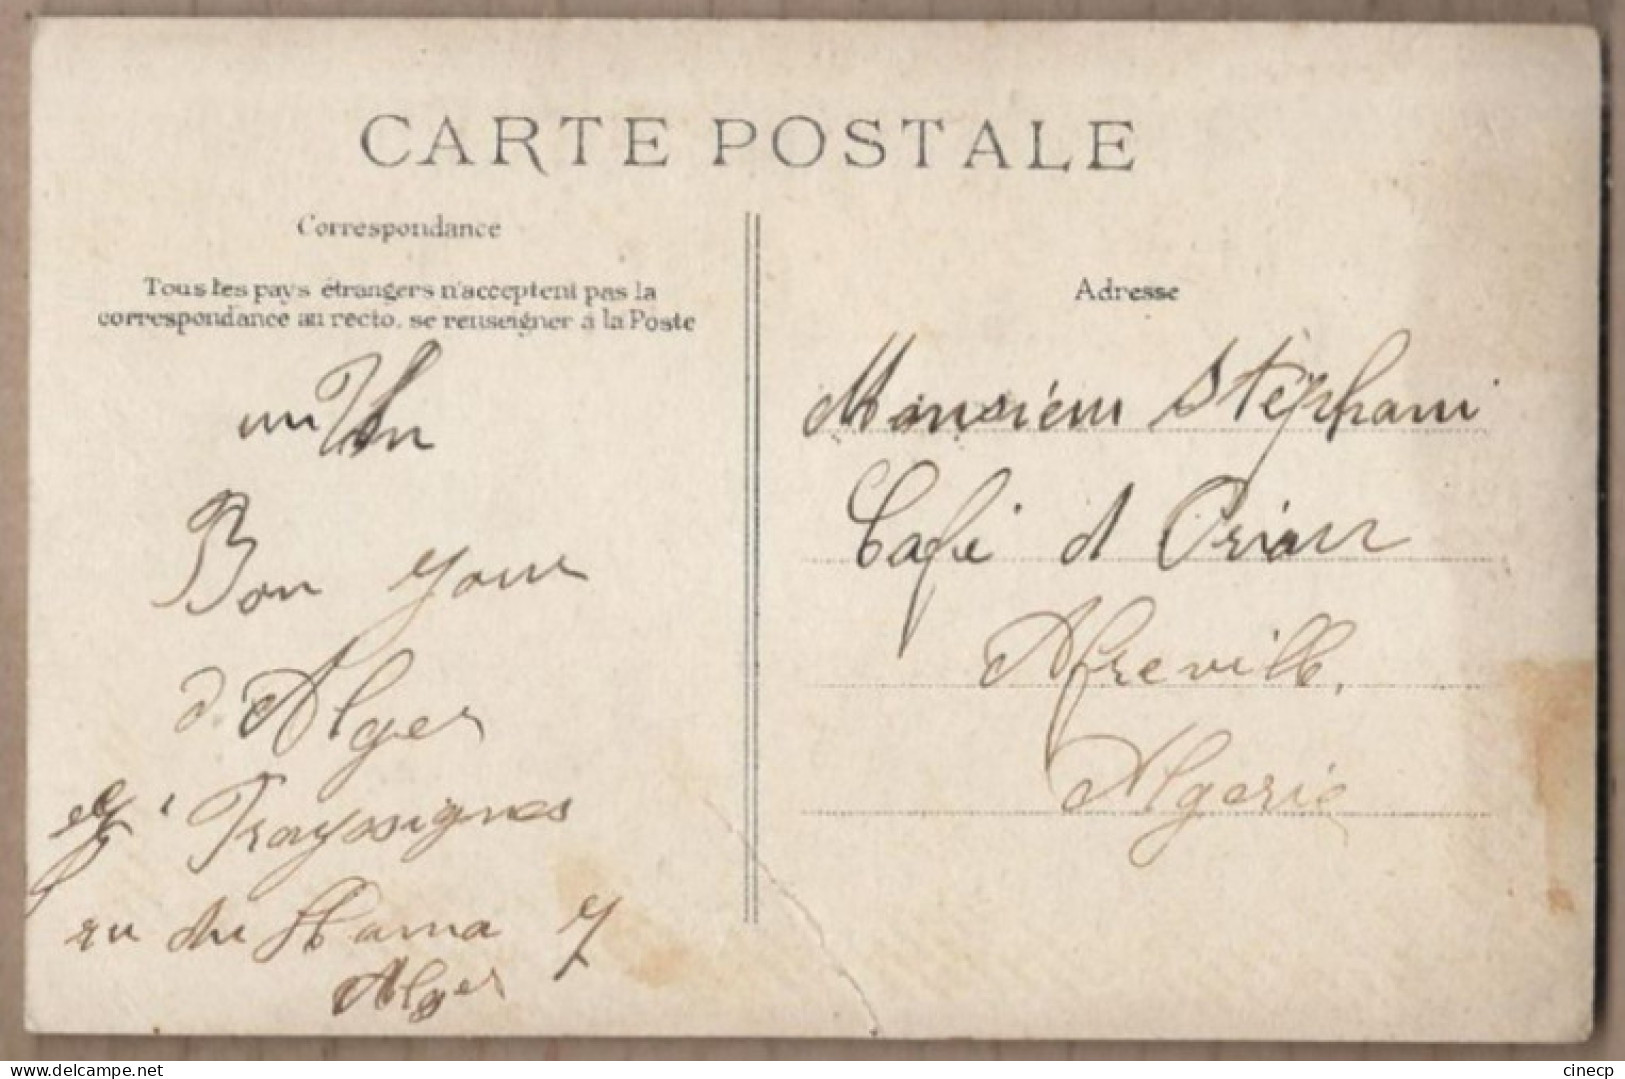 CARTE POSTALE
Correspondance
Tous les pays étrangers n'acceptent pas la
correspondance au recto, se renseigner à la Poste
un
Bon your
d'Alger
Trayssignes
ru du Hama 7
Alger
Adresse
Monsieur Stéphani
Café d Orian
Afreville.
Algerie
delcampe.net
cinecp